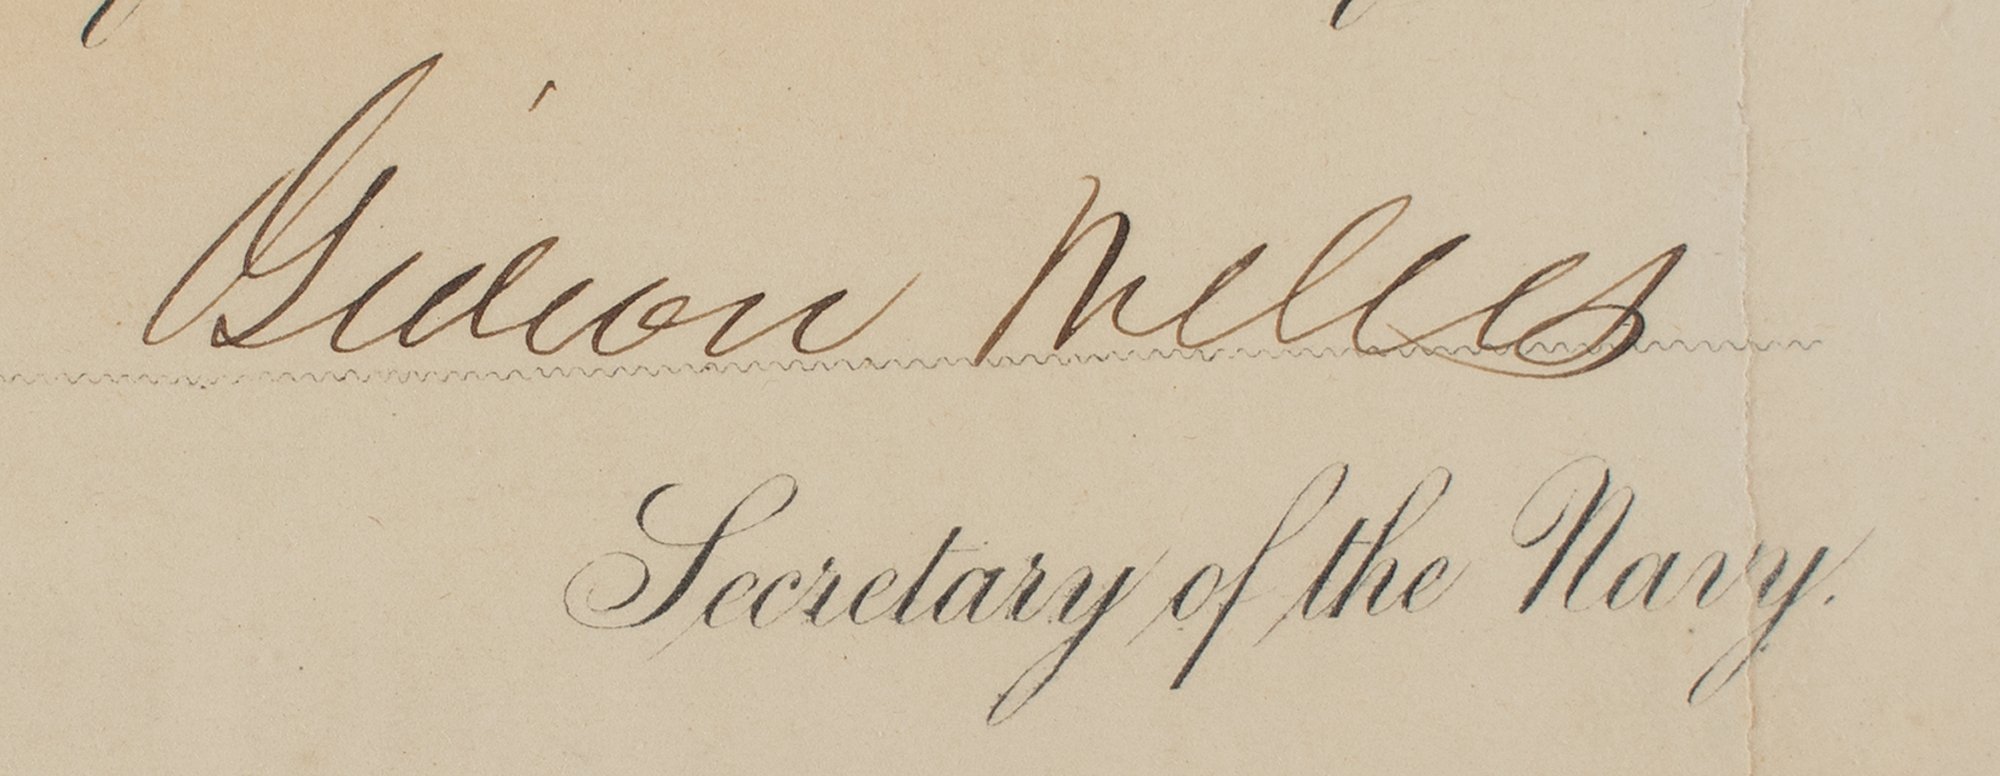 Gideon Welles
Secretary of the Navy.